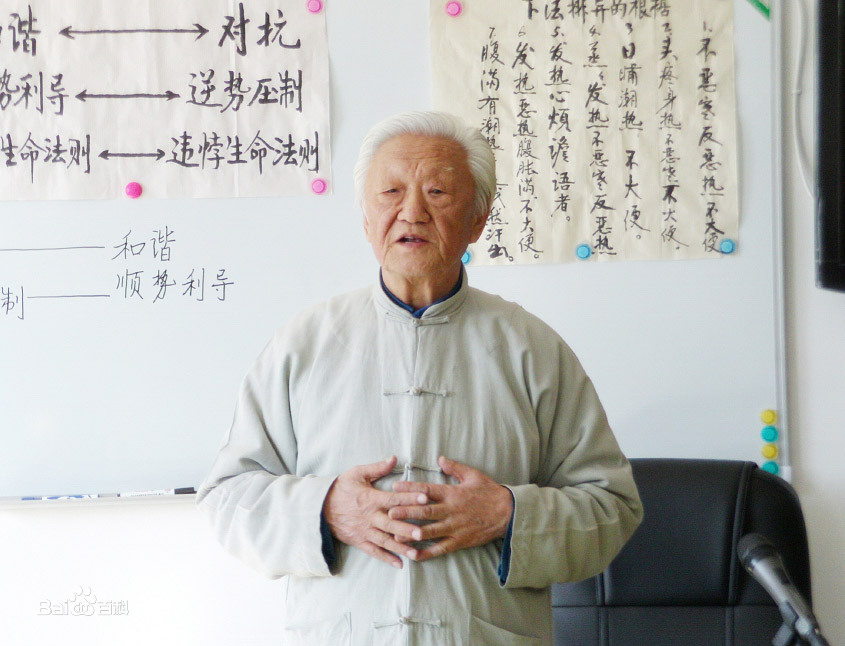 谐 ←→ 对抗
势利导 ←→ 逆势压制
生命法则 ←→ 违悖生命法则
和谐
制 —— 顺势利导
1.不恶寒反恶热不大便
2.头疼身热不恶寒不大便.
3.日晡潮热 不大便。
4.蒸蒸发热不恶寒反恶热
5.发热心烦谵语者。
6.发热恶热腹胀满不大便。
7.腹满有潮热 然汗出。
Bai百科